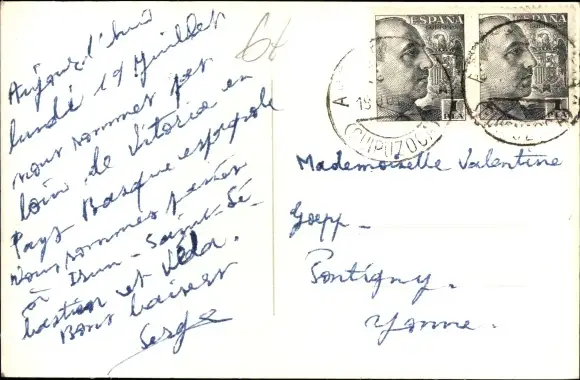 Aujourd'hui
lundi 19 Juillet
nous sommes pas
loin de Vitoria en
Pays Basque espagnole
Nous sommes passés
à Irun - Saint-Sé-
bastien et
Bons baisers
Serge
6f
ESPAÑA
1
PTA
ESPAÑA
1
GUIPUZCOA
Mademoiselle Valentine
Goepp -
Pontigny -
Yonne -